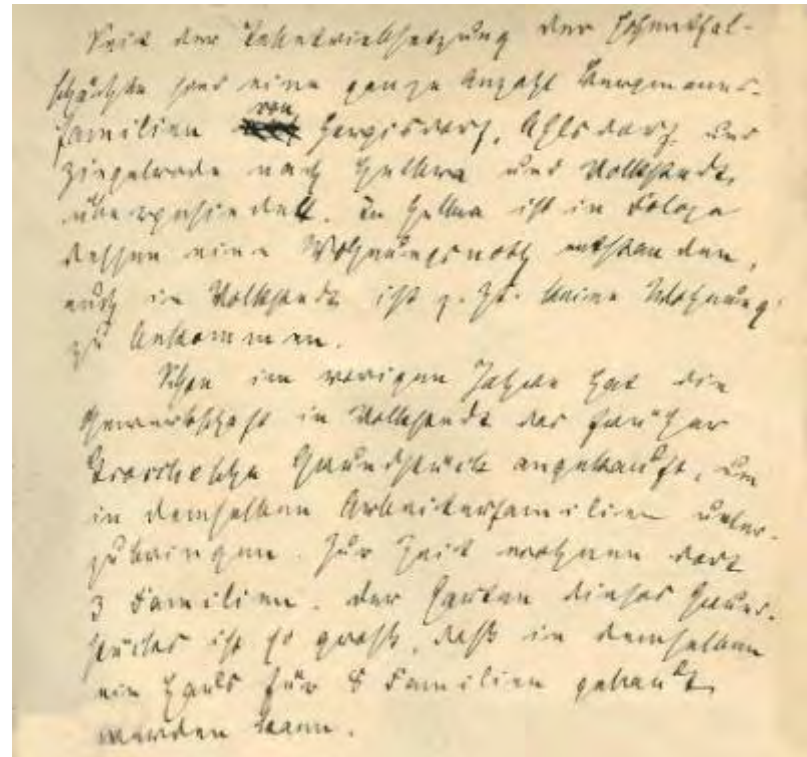 Seit der Inbetriebsetzung der Hohenthal-
schächte sind eine ganze Anzahl Bergmanns-
familien von Hergisdorf, Ahlsdorf und
Ziegelrode nach Helbra und Volkstedt
übergesiedelt. In Helbra ist in Folge
dessen eine Wohnungsnoth entstanden,
auch in Volkstedt ist z. Zt. keine Wohnung
zu bekommen.
Schon im vorigen Jahre hat die
Gewerkschaft in Volkstedt das früher
Grundstück angekauft, um
in demselben Arbeiterfamilien unter-
zubringen. Zur Zeit wohnen dort
3 Familien. Der Garten dieses Grund-
stückes ist so groß, daß in demselben
ein Haus für 8 Familien gebaut
werden kann.